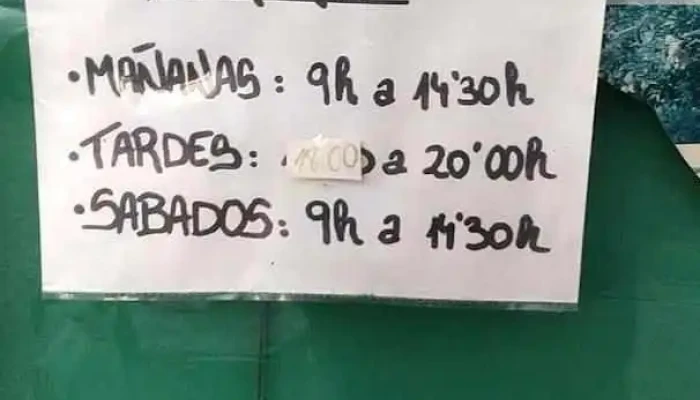 •MAÑANAS: 9h a 14'30h
•TARDES: a 20'00h
•SABADOS: 9h a 14'30h